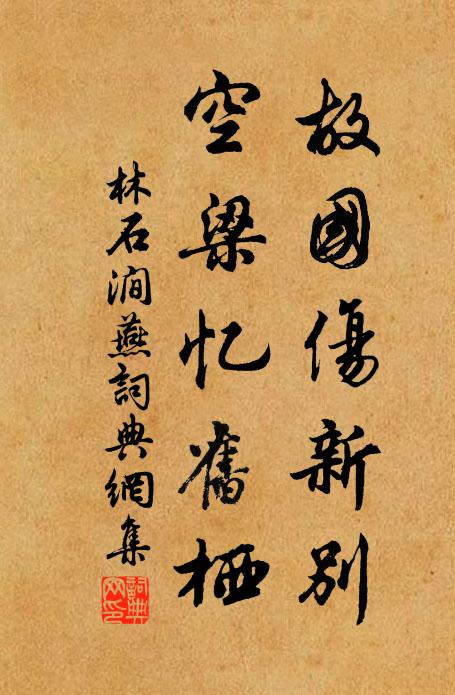 故國傷新別
空梁忆舊栖
林石澗燕詞典網集
詞典网印